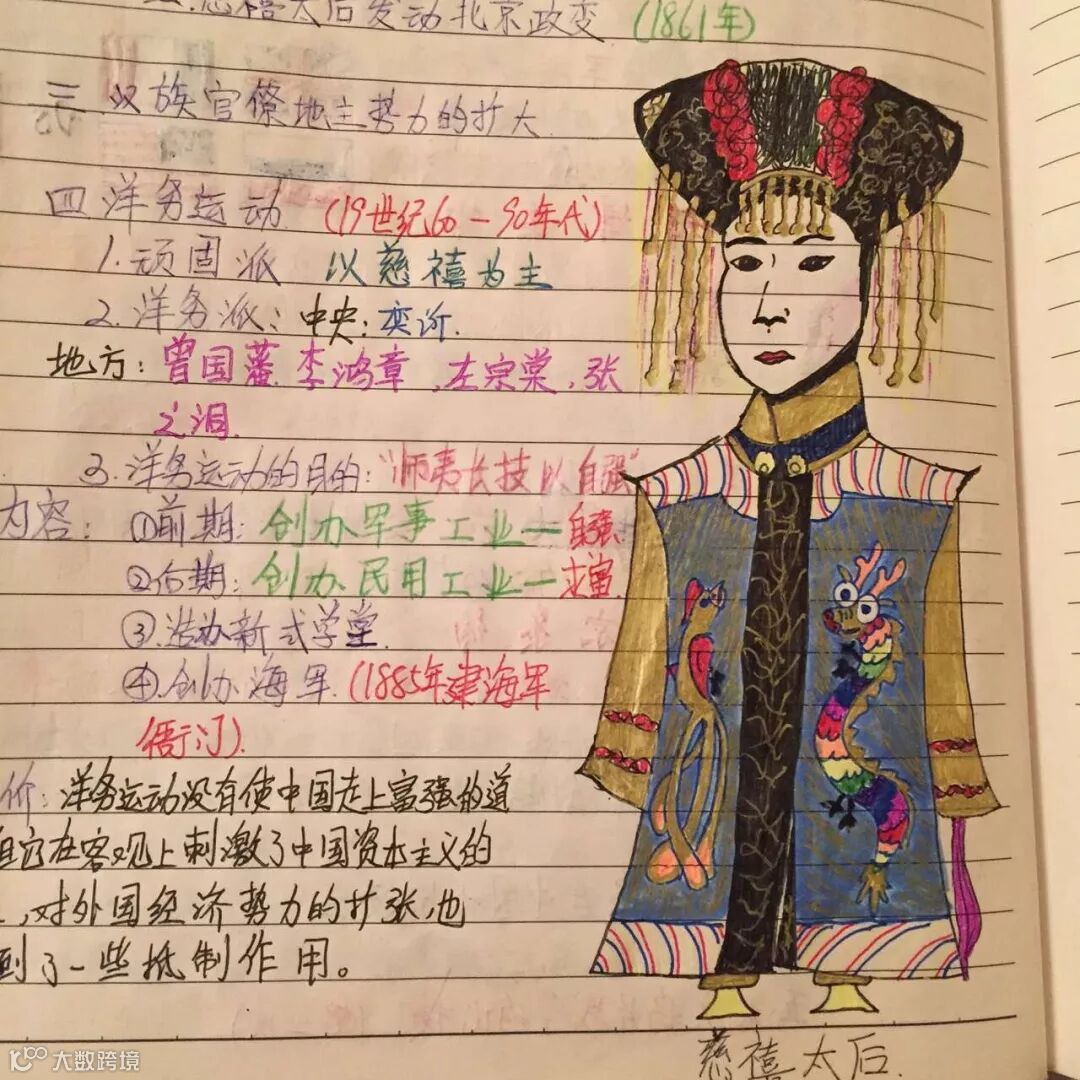 慈禧太后发动北京政变 (1861年)
三 汉族官僚地主势力的扩大
四 洋务运动 (19世纪60-90年代)
1. 顽固派 以慈禧为主
2. 洋务派: 中央: 奕䜣.
地方: 曾国藩. 李鸿章, 左宗棠, 张
之洞.
3. 洋务运动的目的: "师夷长技以自强"
内容: ①前期: 创办军事工业—自强.
②后期: 创办民用工业—求富.
③ 新式学堂.
④. 创办海军. (1885年建海军
衙门).
价: 洋务运动没有使中国走上富强的道
但它在客观上刺激了中国资本主义的
, 对外国经济势力的扩张, 也
到了一些抵制作用。
慈禧太后.
大数跨境